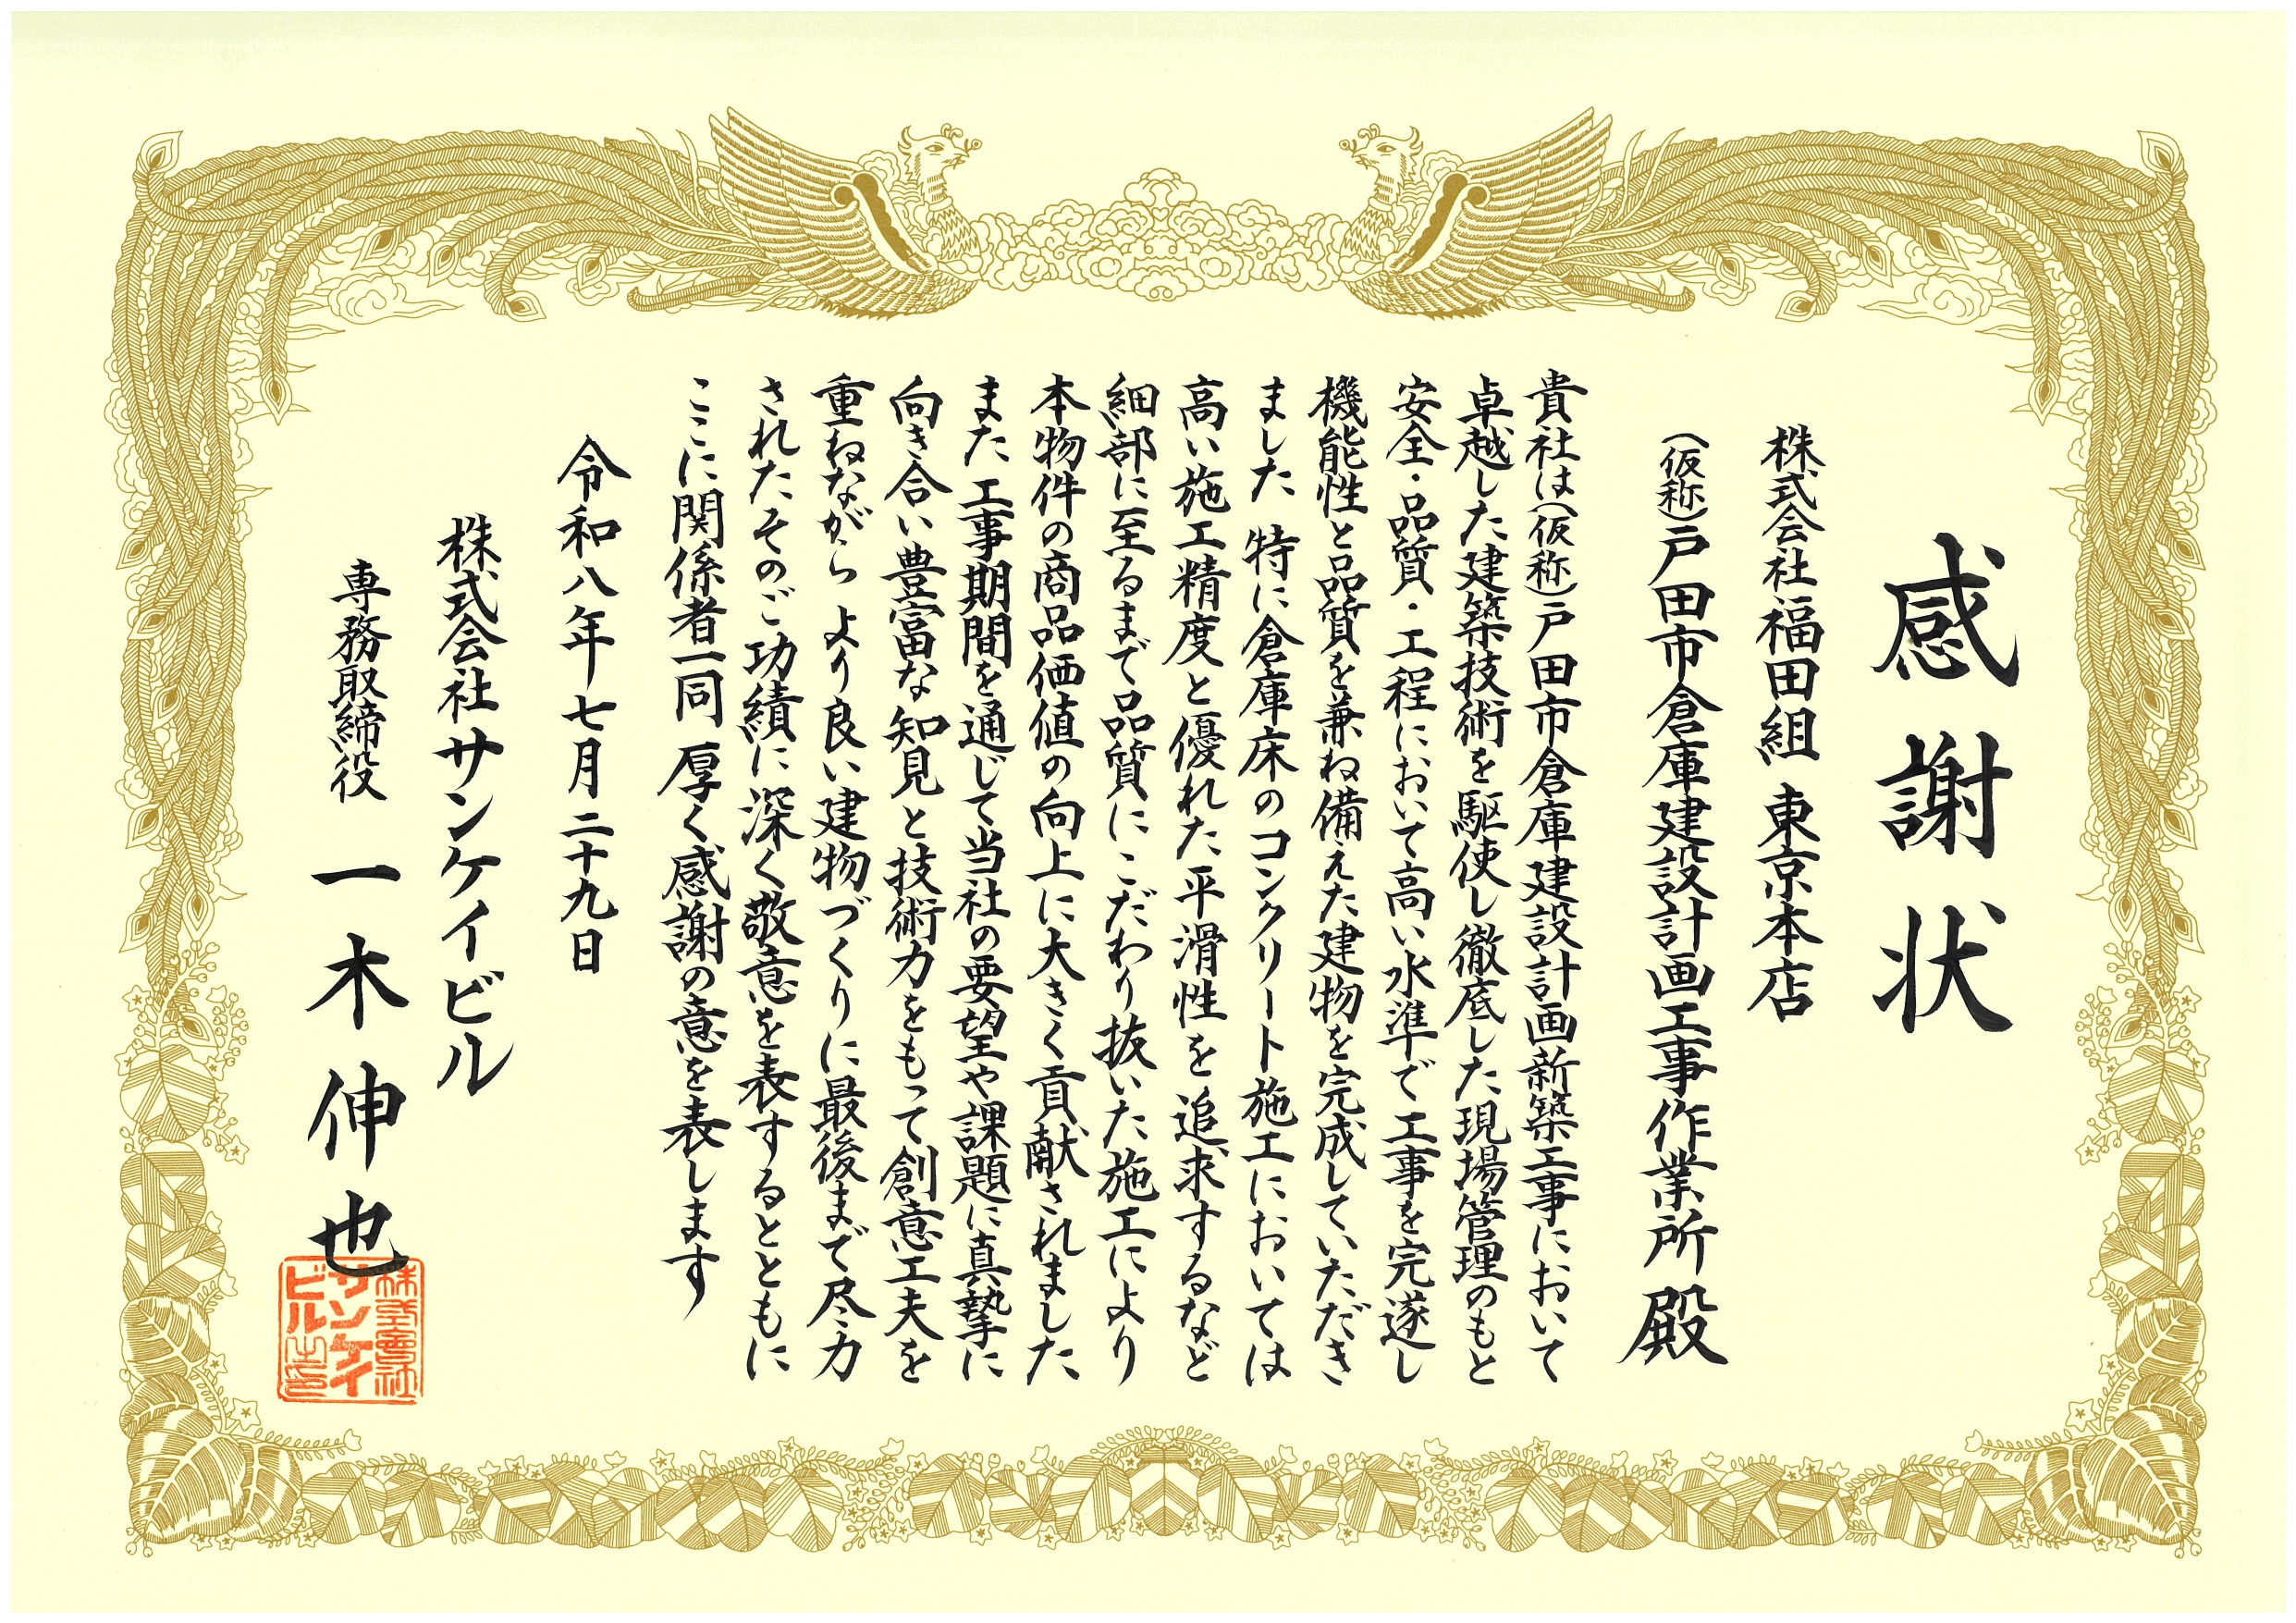 感謝状
株式会社福田組 東京本店
(仮称)戸田市倉庫建設計画工事作業所 殿
貴社は(仮称)戸田市倉庫建設計画新築工事において
卓越した建築技術を駆使し徹底した現場管理のもと
安全・品質・工程において高い水準で工事を完遂し
機能性と品質を兼ね備えた建物を完成していただき
ました 特に倉庫床のコンクリート施工においては
高い施工精度と優れた平滑性を追求するなど
細部に至るまで品質にこだわり抜いた施工により
本物件の商品価値の向上に大きく貢献されました
また工事期間を通じて当社の要望や課題に真摯に
向き合い豊富な知見と技術力をもって創意工夫を
重ねながら より良い建物づくりに最後まで尽力
されたそのご功績に深く敬意を表するとともに
ここに関係者一同 厚く感謝の意を表します
令和八年七月二十九日
株式会社サンケイビル
専務取締役 一木伸也
株式會社
サンケイ
ビル之印